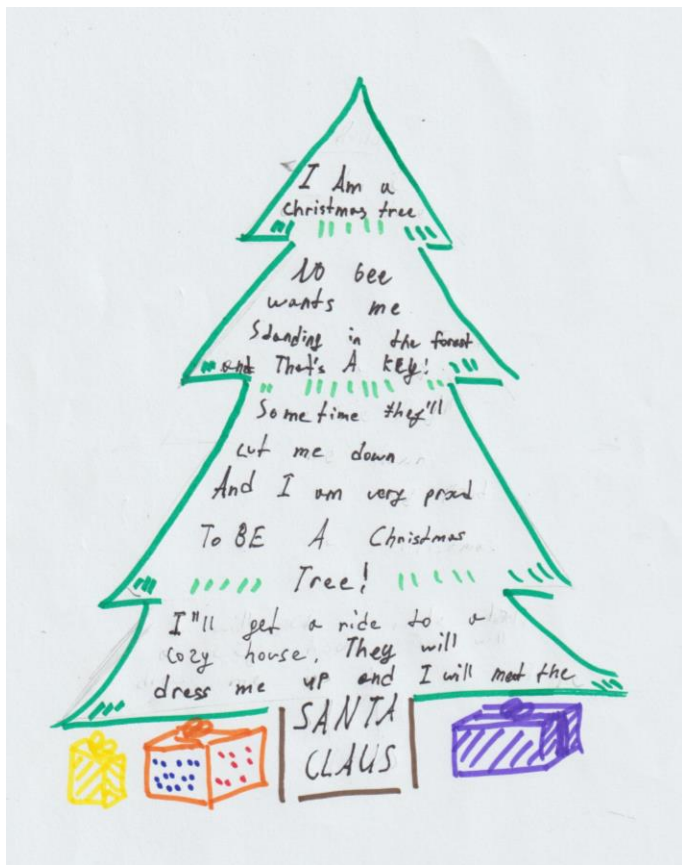 I Am a
christmas tree
No bee
wants me
Standing in the forest
and That's A kEy!
Sometime they'll
cut me down
And I am very proud
To BE A Christmas
Tree!
I"ll get a ride to a
cozy house. They will
dress me up and I will meet the
SANTA
CLAUS